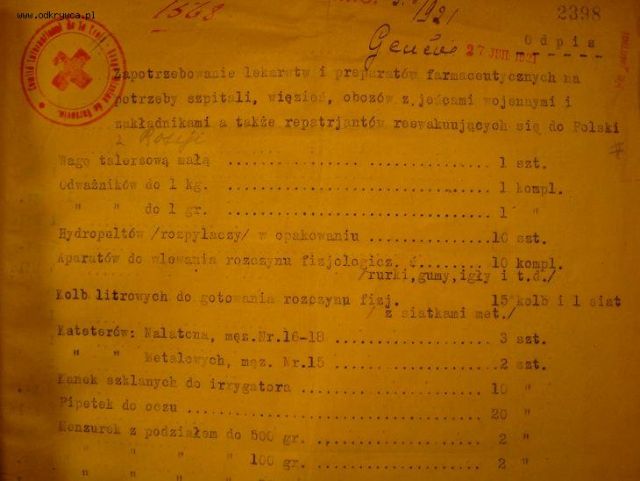 www.odkrywca.pl
1921
2398
Genève 27 JUIL 1921
Odpis
Comité International de la Croix-Rouge
Zapotrzebowanie lekarstw i preparatów farmaceutycznych na
potrzeby szpitali, więzień, obozów z jeńcami wojennymi i
zakładnikami a także repatrjantów reewakuujących się do Polski
z Rosji
Wagę talerzową małą .................... 1 szt.
Odważników do 1 kg. .................... 1 kompl.
" " do 1 gr. .................... 1 "
Hydropultów /rozpylaczy/ w opakowaniu .................... 10 szt.
Aparatów do wlewania rozczynu fizjologicz. 10 kompl.
/rurki,gumy,igły i t.d./
Kolb litrowych do gotowania rozczynu fizj. 15 kolb i 1 siat
/z siatkami met./
Kateterów: Nalatona, męz.Nr.16-18 .................... 3 szt.
" " Metalowych, męz. Nr.15 .................... 2 szt.
Kanek szklanych do irrygatora .................... 10 "
Pipetek do oczu .................... 20 "
Menzurek z podziałem do 500 gr. .................... 2 "
" " " " 100 gr. .................... 2 "